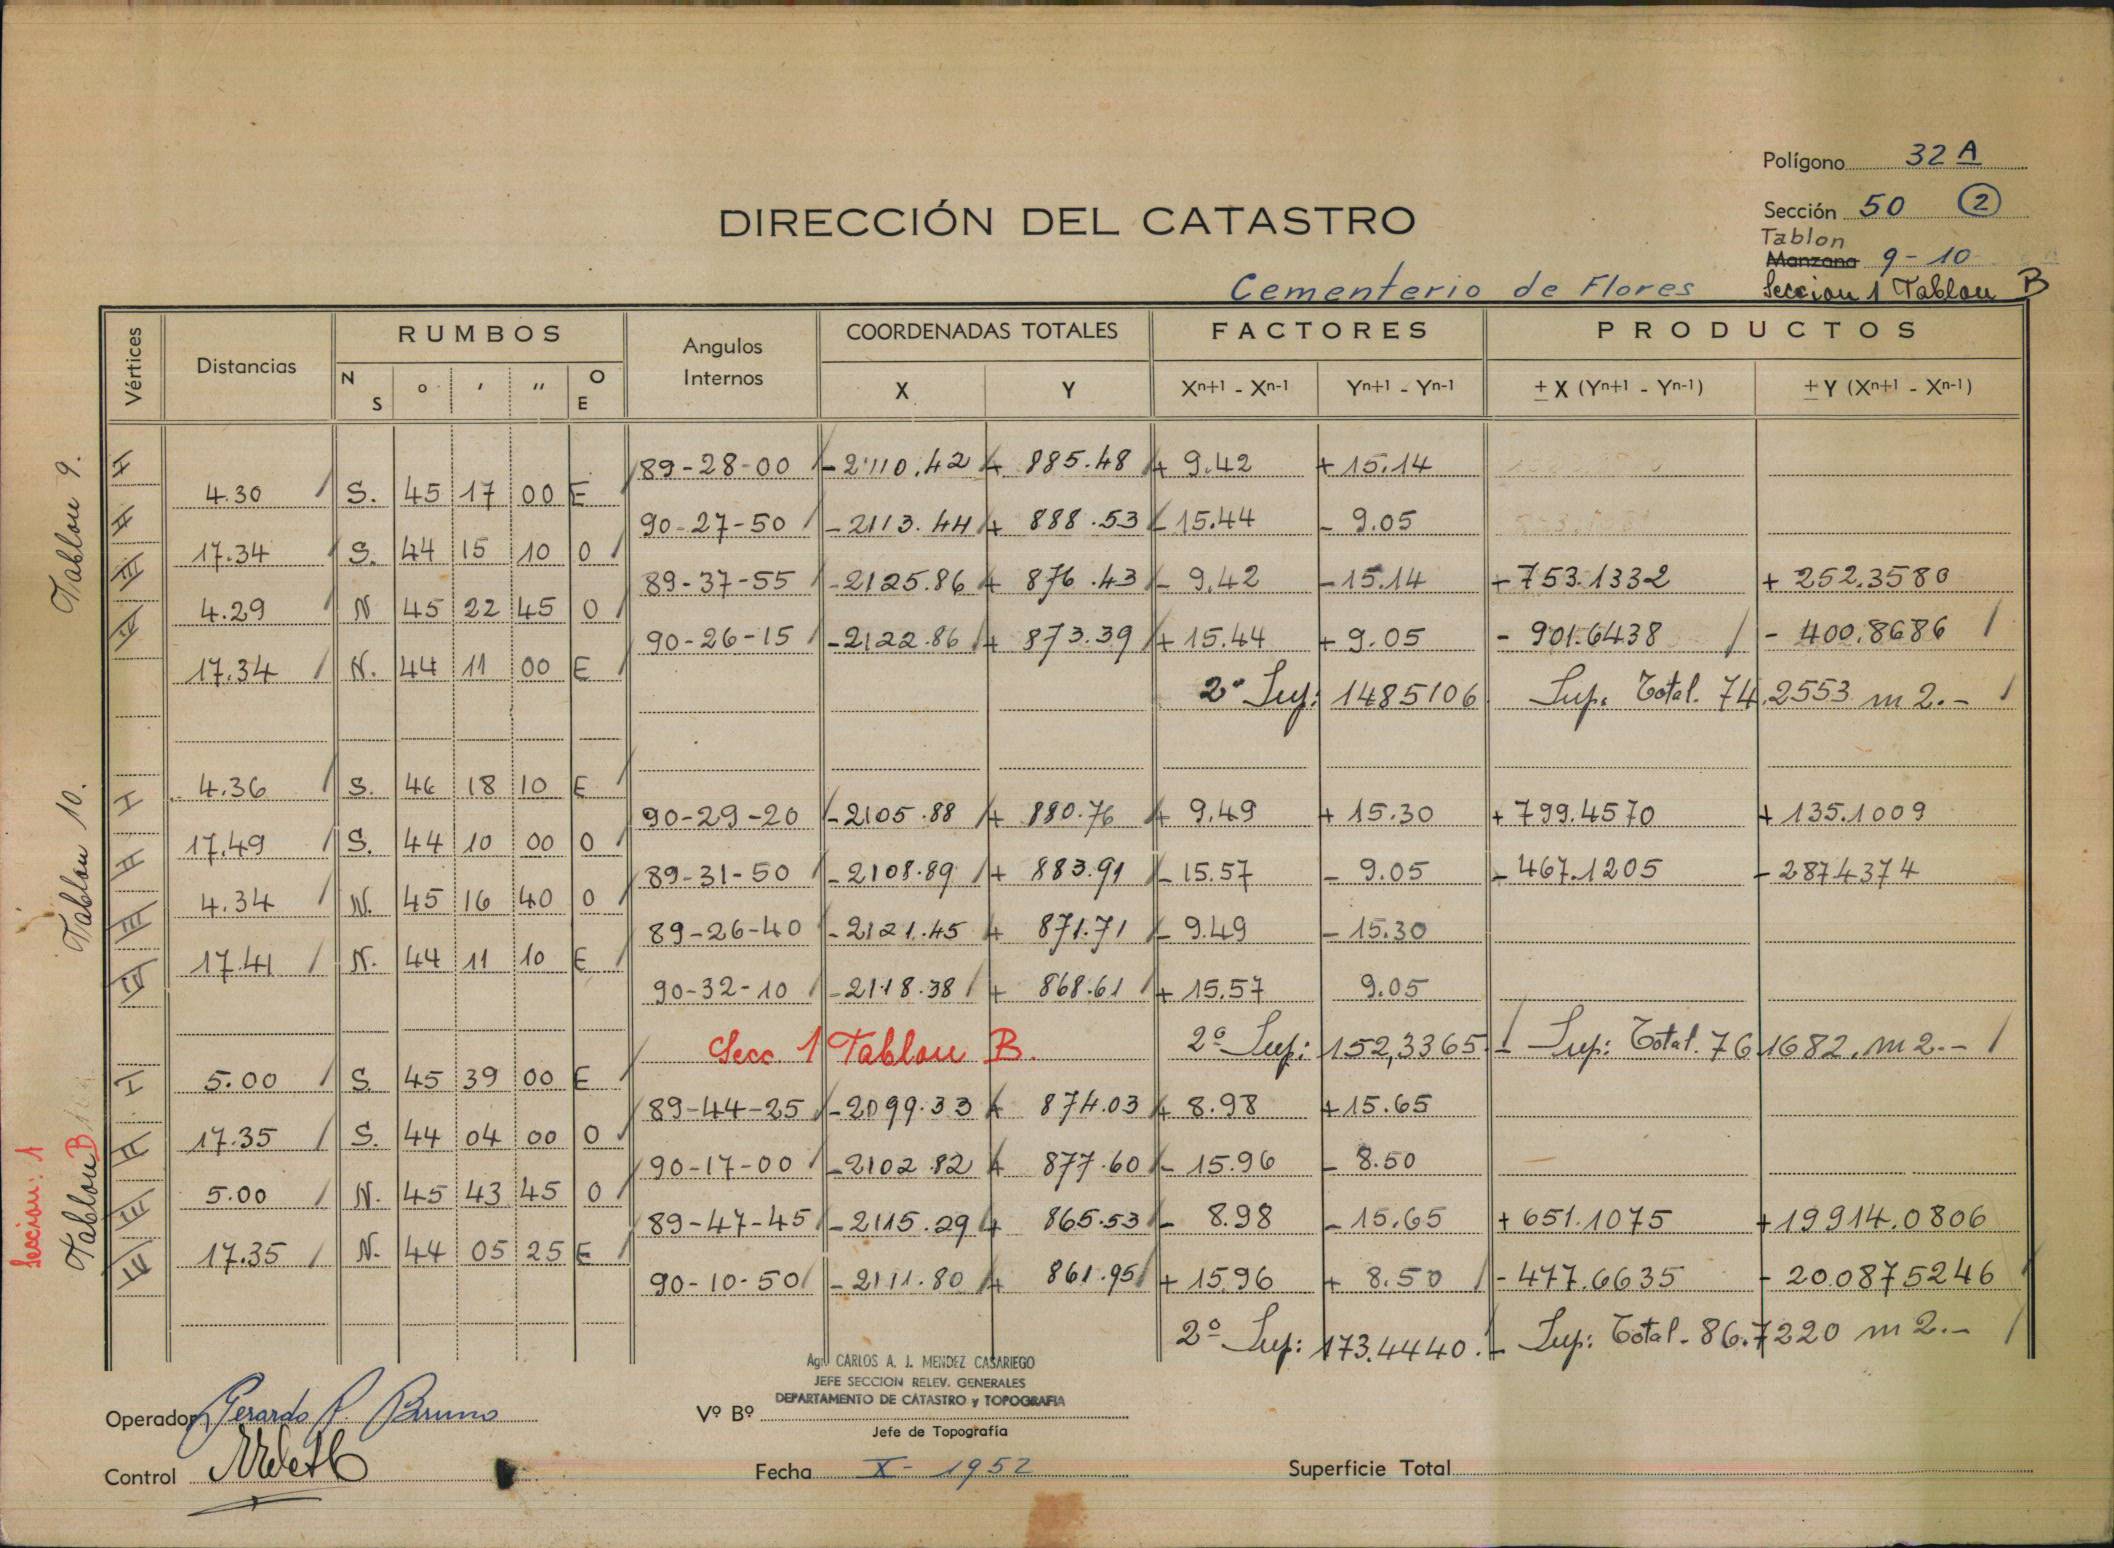 Polígono 32 A
Sección 50 2
DIRECCIÓN DEL CATASTRO
Tablon
Manzana 9-10
Cementerio de Flores Seccion 1 Tablon B
Vértices Distancias RUMBOS Angulos Internos COORDENADAS TOTALES FACTORES PRODUCTOS
N S ° ' " O E X Y Xn+1 - Xn-1 Yn+1 - Yn-1 ± X (Yn+1 - Yn-1) ± Y (Xn+1 - Xn-1)
Tablon 9.
I 89-28-00 -2110.42 + 885.48 + 9.42 + 15.14
4.30 S. 45 17 00 E
II 90-27-50 -2113.44 + 888.53 - 15.44 - 9.05
17.34 S. 44 15 10 O
III 89-37-55 -2125.86 + 876.43 - 9.42 - 15.14 + 753.1332 + 252.3580
4.29 N 45 22 45 O
IV 90-26-15 -2122.86 + 873.39 + 15.44 + 9.05 - 901.6438 - 400.8686
17.34 N. 44 11 00 E
2º Sup: 1485106 Sup. Total. 74.2553 m2.-
Tablon 10.
4.36 S. 46 18 10 E
I 90-29-20 -2105.88 + 880.76 + 9.49 + 15.30 + 799.4570 + 135.1009
17.49 S. 44 10 00 O
II 89-31-50 -2108.89 + 883.91 - 15.57 - 9.05 - 467.1205 - 287.4374
4.34 N. 45 16 40 O
III 89-26-40 -2121.45 + 871.71 - 9.49 - 15.30
17.41 N. 44 11 10 E
IV 90-32-10 -2118.38 + 868.61 + 15.57 9.05
Secc 1 Tablon B. 2º Sup: 152,3365 Sup: Total. 76.1682. m2.-
Seccion: 1
Tablon B
5.00 S. 45 39 00 E
I 89-44-25 -2099.33 + 874.03 + 8.98 + 15.65
17.35 S. 44 04 00 O
II 90-17-00 -2102.82 + 877.60 - 15.96 - 8.50
5.00 N. 45 43 45 O
III 89-47-45 -2115.29 + 865.53 - 8.98 - 15.65 + 651.1075 + 19914.0806
17.35 N. 44 05 25 E
IV 90-10-50 -2111.80 + 861.95 + 15.96 + 8.50 - 477.6635 - 20.0875246
2º Sup: 173.4440. Sup: Total. 86.7220 m2.-
Agr. CARLOS A. J. MENDEZ CASARIEGO
JEFE SECCION RELEV. GENERALES
DEPARTAMENTO DE CATASTRO y TOPOGRAFIA
Operador Gerardo P. Bruno Vº Bº
Jefe de Topografía
Control Fecha X- 1952 Superficie Total